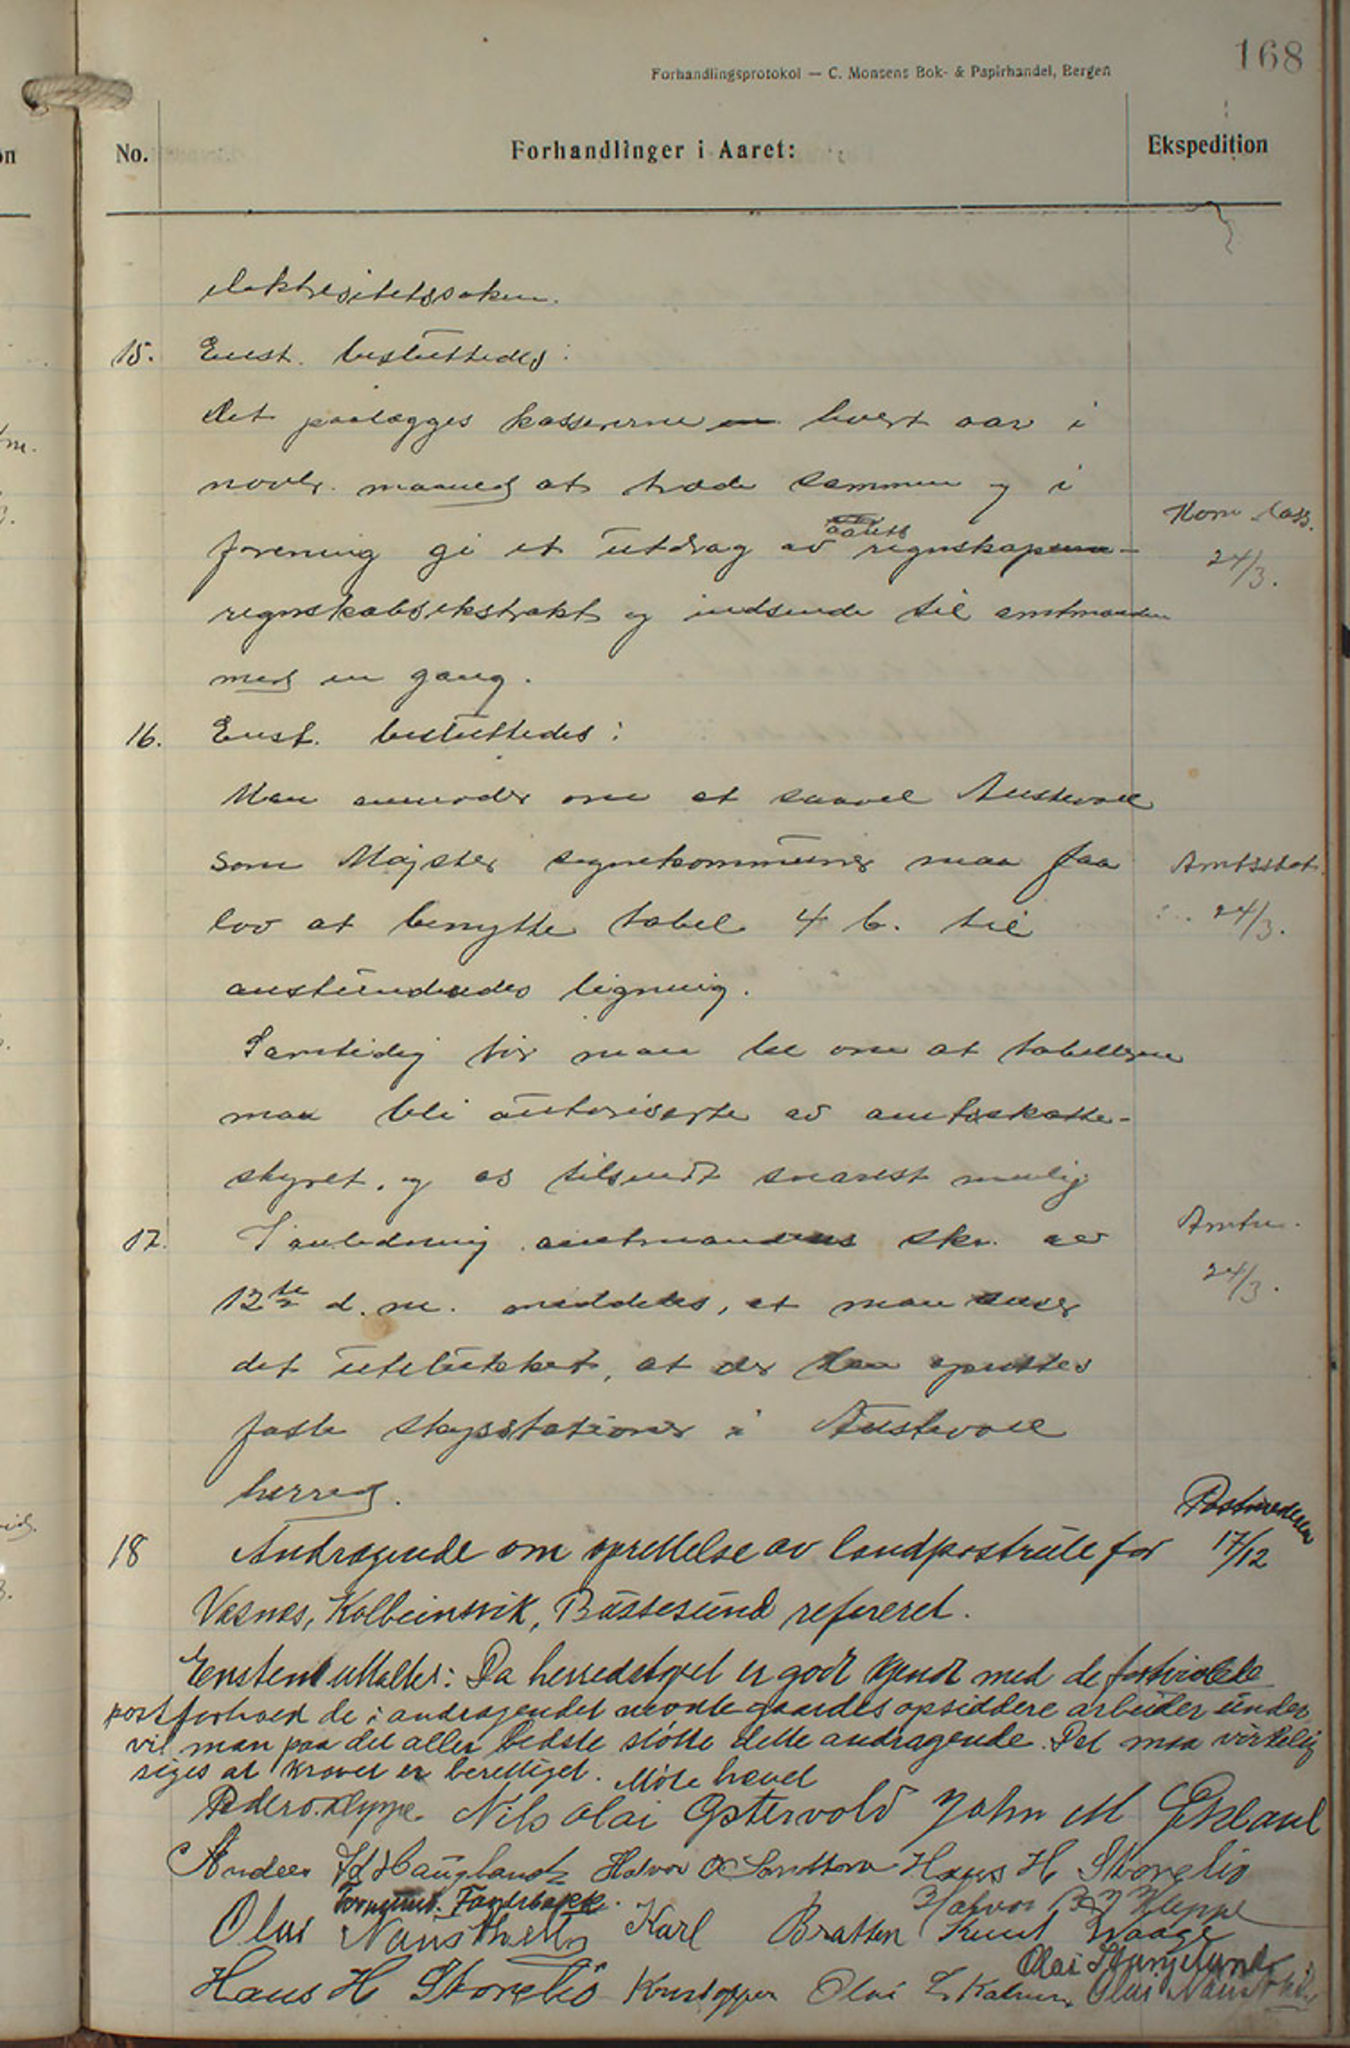 168
Forhandlingsprotokol — C. Monsens Bok- & Papirhandel, Bergen
No. Forhandlinger i Aaret: Ekspedition
elektrisitetssaken.
15. Enst. besluttedes:
Det paalægges kassererne hvert aar i
novbr. maaned at træde sammen og i
forening gi et utdrag av aarets regnskap
Kom. kass.
24/3.
regnskabsekstrakt og indsende til amtmanden
med en gang.
16. Enst. besluttedes:
Man anmoder om at saavel Austevoll
som Møgster sognekommuner maa faa
Amtsskat.
lov at benytte tabel 4 b. til
24/3.
anstundende ligning.
Samtidig bør man be om at tabellerne
maa bli autoriserte av amtsskatte-
styret, og os tilsendt snarest mulig
17. I anledning amtmandens skr. av
Amtm.
24/3.
12te d.m. meddeles, at man anser
det utelukket, at der kan oprettes
faste skysstationer i Austevoll
herred.
18 Andragende om oprettelse av landpostrute for
17/12
Vasnes, Kolbeinsvik, Bassesund referert.
Enstem uttalte: Da herredstyret er godt kjendt med de
postforhold de i andragendet nævnte gaardes opsiddere arbeider under
vil man paa det aller bedste støtte dette andragende. Det maa virkelig
siges at kravet er berettiget. Møte hævet
Peder O. Kleppe. Nils Olai Østervold John M
Anders Haugland Halvor O Sandtorv Hans H Storebø
Halvor Kleppe
Olai Karl Bratten Knut Waage
Olai Stangeland
Hans H Storebø Olai Kalve Olai